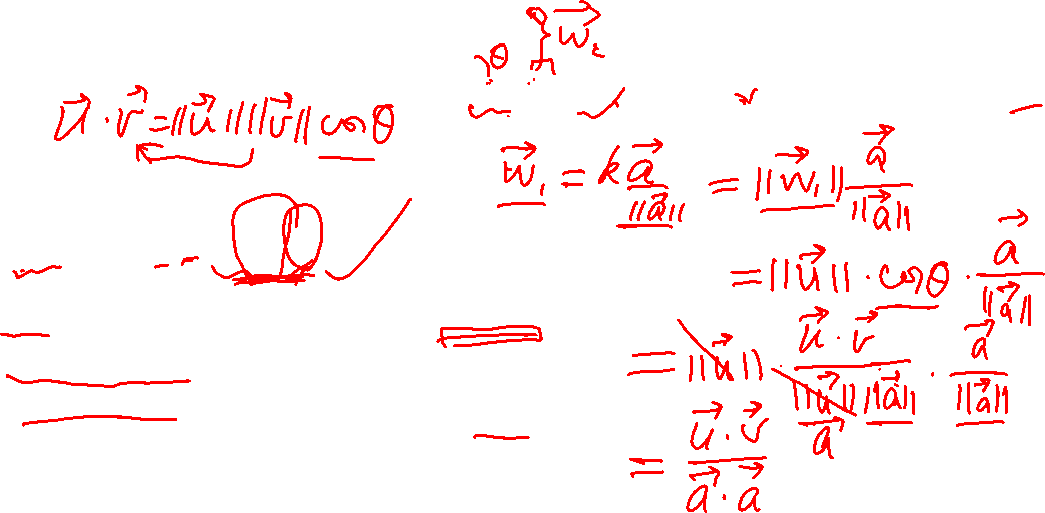 θ } w⃗₂
u⃗ · v⃗ = ||u⃗|| ||v⃗|| cosθ
w⃗₁ = k a⃗ / ||a⃗|| = ||w⃗₁|| a⃗ / ||a⃗||
= ||u⃗|| · cosθ · a⃗ / ||a⃗||
= ||u⃗|| · u⃗ · v⃗ / ||u⃗|| ||a⃗|| · a⃗ / ||a⃗||
a⃗
= u⃗ · v⃗ / a⃗ · a⃗